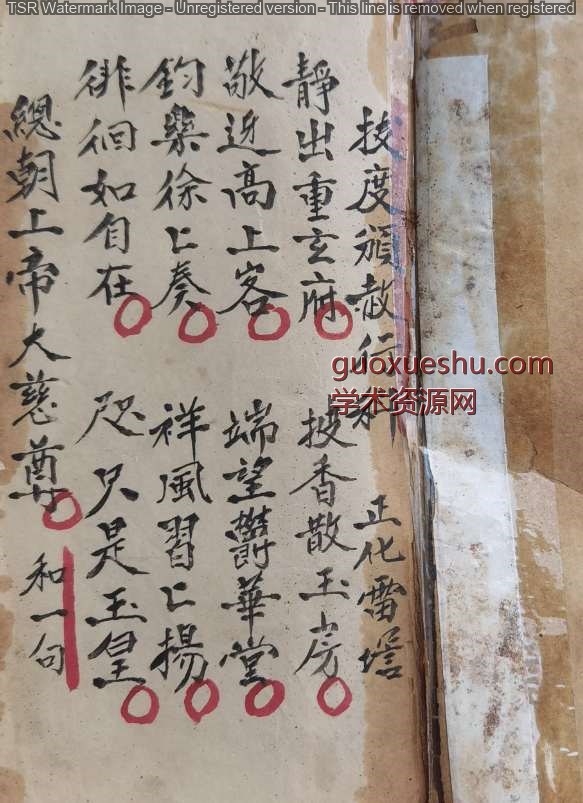 TSR Watermark Image - Unregistered version - This line is removed when registered
技度頒赦行科 正化雷壇
靜出重玄府 披香散玉房
敬迎高上客 端望欝華堂
鈞樂徐〻奏 祥風習〻揚
徘徊如自在 咫只是玉皇
總朝上帝大慈尊 和一句
guoxueshu.com
学术资源网